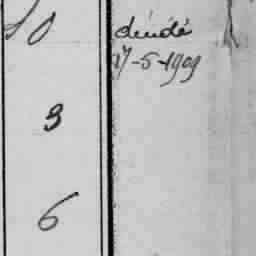 10 décédé
17-5-1909
3
6